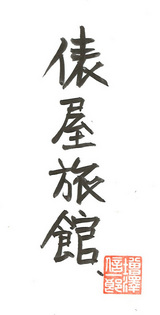 俵屋旅館、